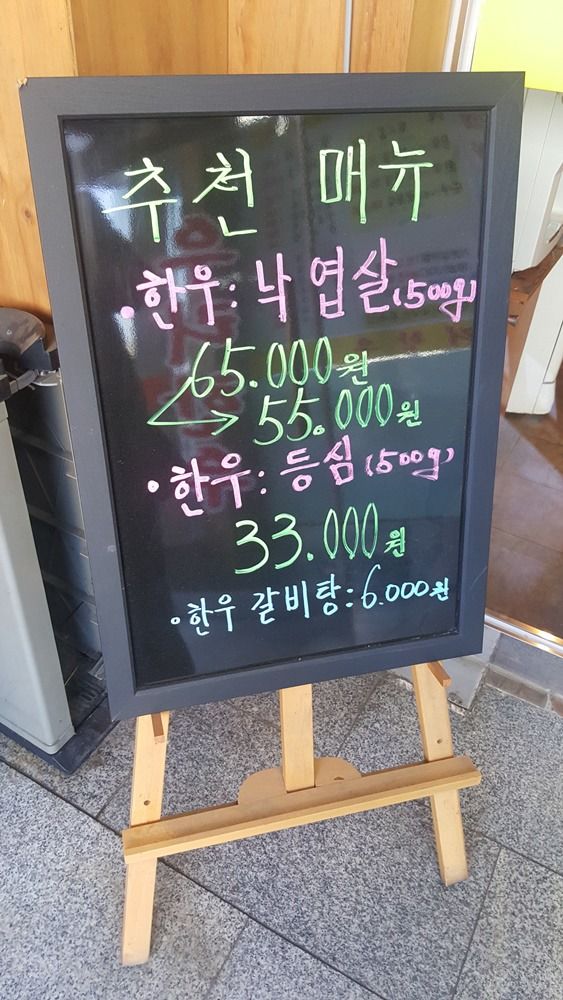 추천 매뉴
•한우: 낙엽살(500g)
65.000원
→55.000원
•한우: 등심(500g)
33.000원
•한우 갈비탕:6.000원